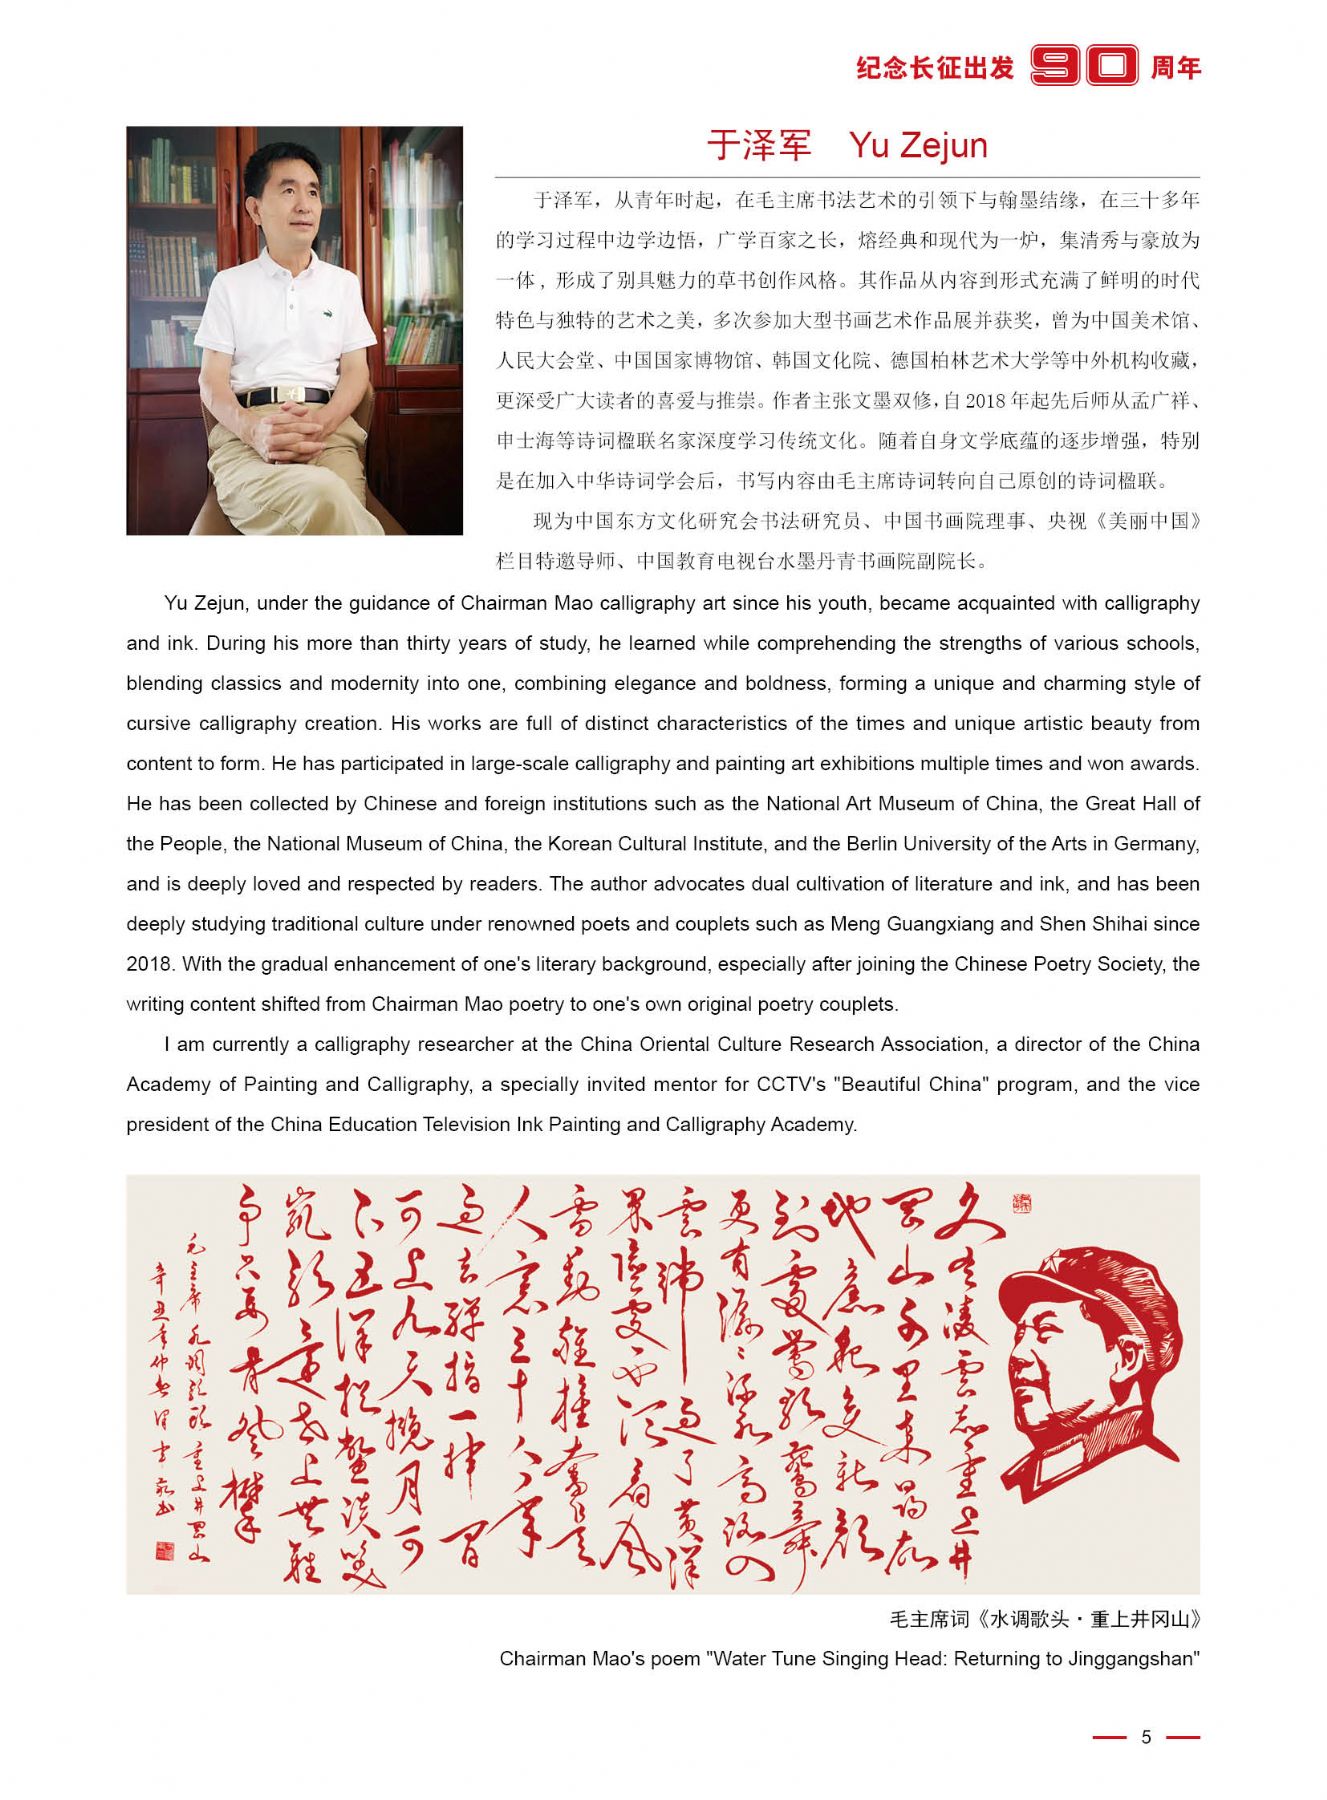 纪念长征出发90周年
于泽军 Yu Zejun
于泽军，从青年时起，在毛主席书法艺术的引领下与翰墨结缘，在三十多年
的学习过程中边学边悟，广学百家之长，熔经典和现代为一炉，集清秀与豪放为
一体，形成了别具魅力的草书创作风格。其作品从内容到形式充满了鲜明的时代
特色与独特的艺术之美，多次参加大型书画艺术作品展并获奖，曾为中国美术馆、
人民大会堂、中国国家博物馆、韩国文化院、德国柏林艺术大学等中外机构收藏，
更深受广大读者的喜爱与推崇。作者主张文墨双修，自2018年起先后师从孟广祥、
申士海等诗词楹联名家深度学习传统文化。随着自身文学底蕴的逐步增强，特别
是在加入中华诗词学会后，书写内容由毛主席诗词转向自己原创的诗词楹联。
现为中国东方文化研究会书法研究员、中国书画院理事、央视《美丽中国》
栏目特邀导师、中国教育电视台水墨丹青书画院副院长。
Yu Zejun, under the guidance of Chairman Mao calligraphy art since his youth, became acquainted with calligraphy
and ink. During his more than thirty years of study, he learned while comprehending the strengths of various schools,
blending classics and modernity into one, combining elegance and boldness, forming a unique and charming style of
cursive calligraphy creation. His works are full of distinct characteristics of the times and unique artistic beauty from
content to form. He has participated in large-scale calligraphy and painting art exhibitions multiple times and won awards.
He has been collected by Chinese and foreign institutions such as the National Art Museum of China, the Great Hall of
the People, the National Museum of China, the Korean Cultural Institute, and the Berlin University of the Arts in Germany,
and is deeply loved and respected by readers. The author advocates dual cultivation of literature and ink, and has been
deeply studying traditional culture under renowned poets and couplets such as Meng Guangxiang and Shen Shihai since
2018. With the gradual enhancement of one's literary background, especially after joining the Chinese Poetry Society, the
writing content shifted from Chairman Mao poetry to one's own original poetry couplets.
I am currently a calligraphy researcher at the China Oriental Culture Research Association, a director of the China
Academy of Painting and Calligraphy, a specially invited mentor for CCTV's "Beautiful China" program, and the vice
president of the China Education Television Ink Painting and Calligraphy Academy.
久有凌雲志重上井
岡山千里来尋故
地舊貌變新顏
到處鶯歌燕舞
更有潺々流水高路入
雲端過了黄洋
界險處不須看風
雷動旌旗奮是
人寰三十八年
過去彈指一揮間
可上九天攬月可
下五洋捉鱉談笑
凱歌還世上無難
事只要肯登攀
毛主席水調歌頭重上井岡山
辛丑年仲春澤軍敬书
毛主席词《水调歌头·重上井冈山》
Chairman Mao's poem "Water Tune Singing Head: Returning to Jinggangshan"
5